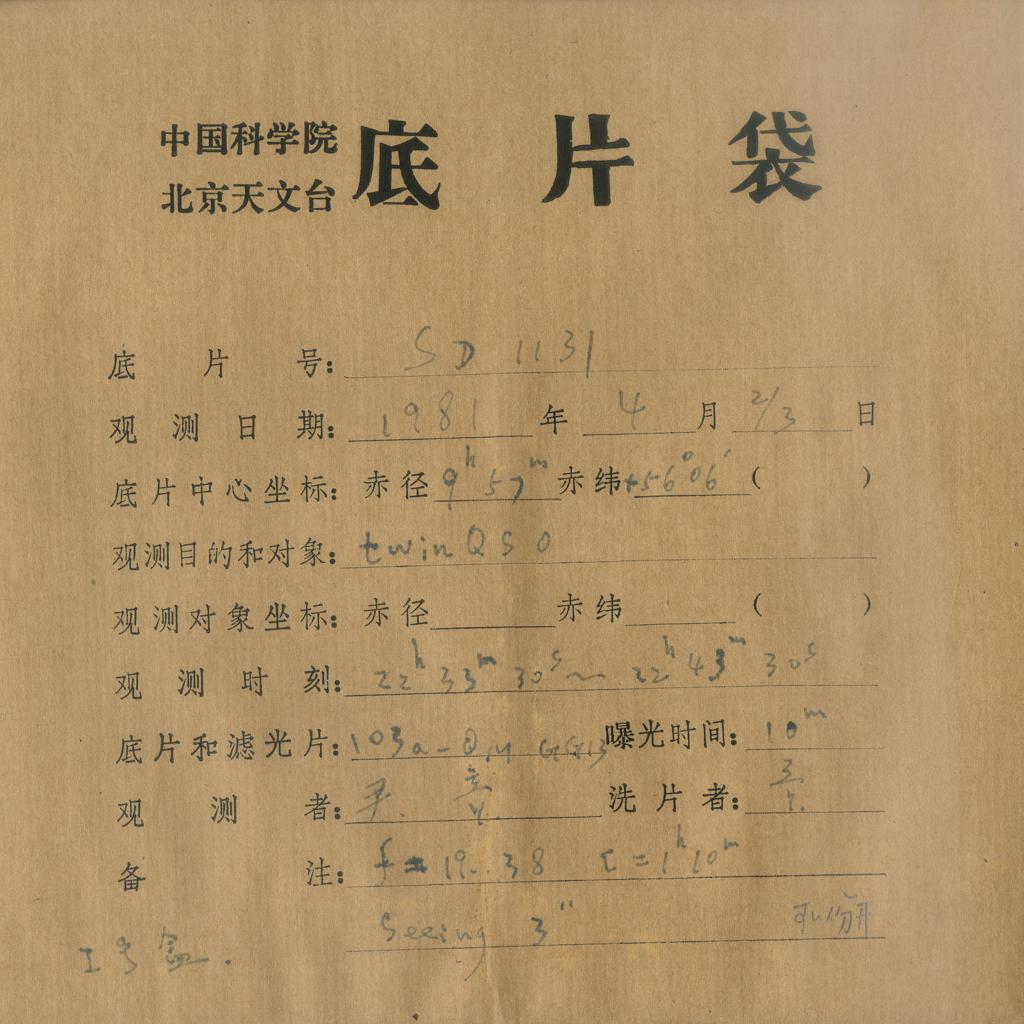 中国科学院
北京天文台
底片袋
底片号: SD 1131
观测日期: 1981年 4月 2/3日
底片中心坐标: 赤径 9h 57m 赤纬 +56°06′ ( )
观测目的和对象: twin QSO
观测对象坐标: 赤径 赤纬 ( )
观测时刻: 22h 33m 30s ~ 22h 43m 30s
底片和滤光片: 103a-O, GG13 曝光时间: 10m
观测者: 洗片者:
备注: f = 19.38 t = 1h 10m
Seeing 3″